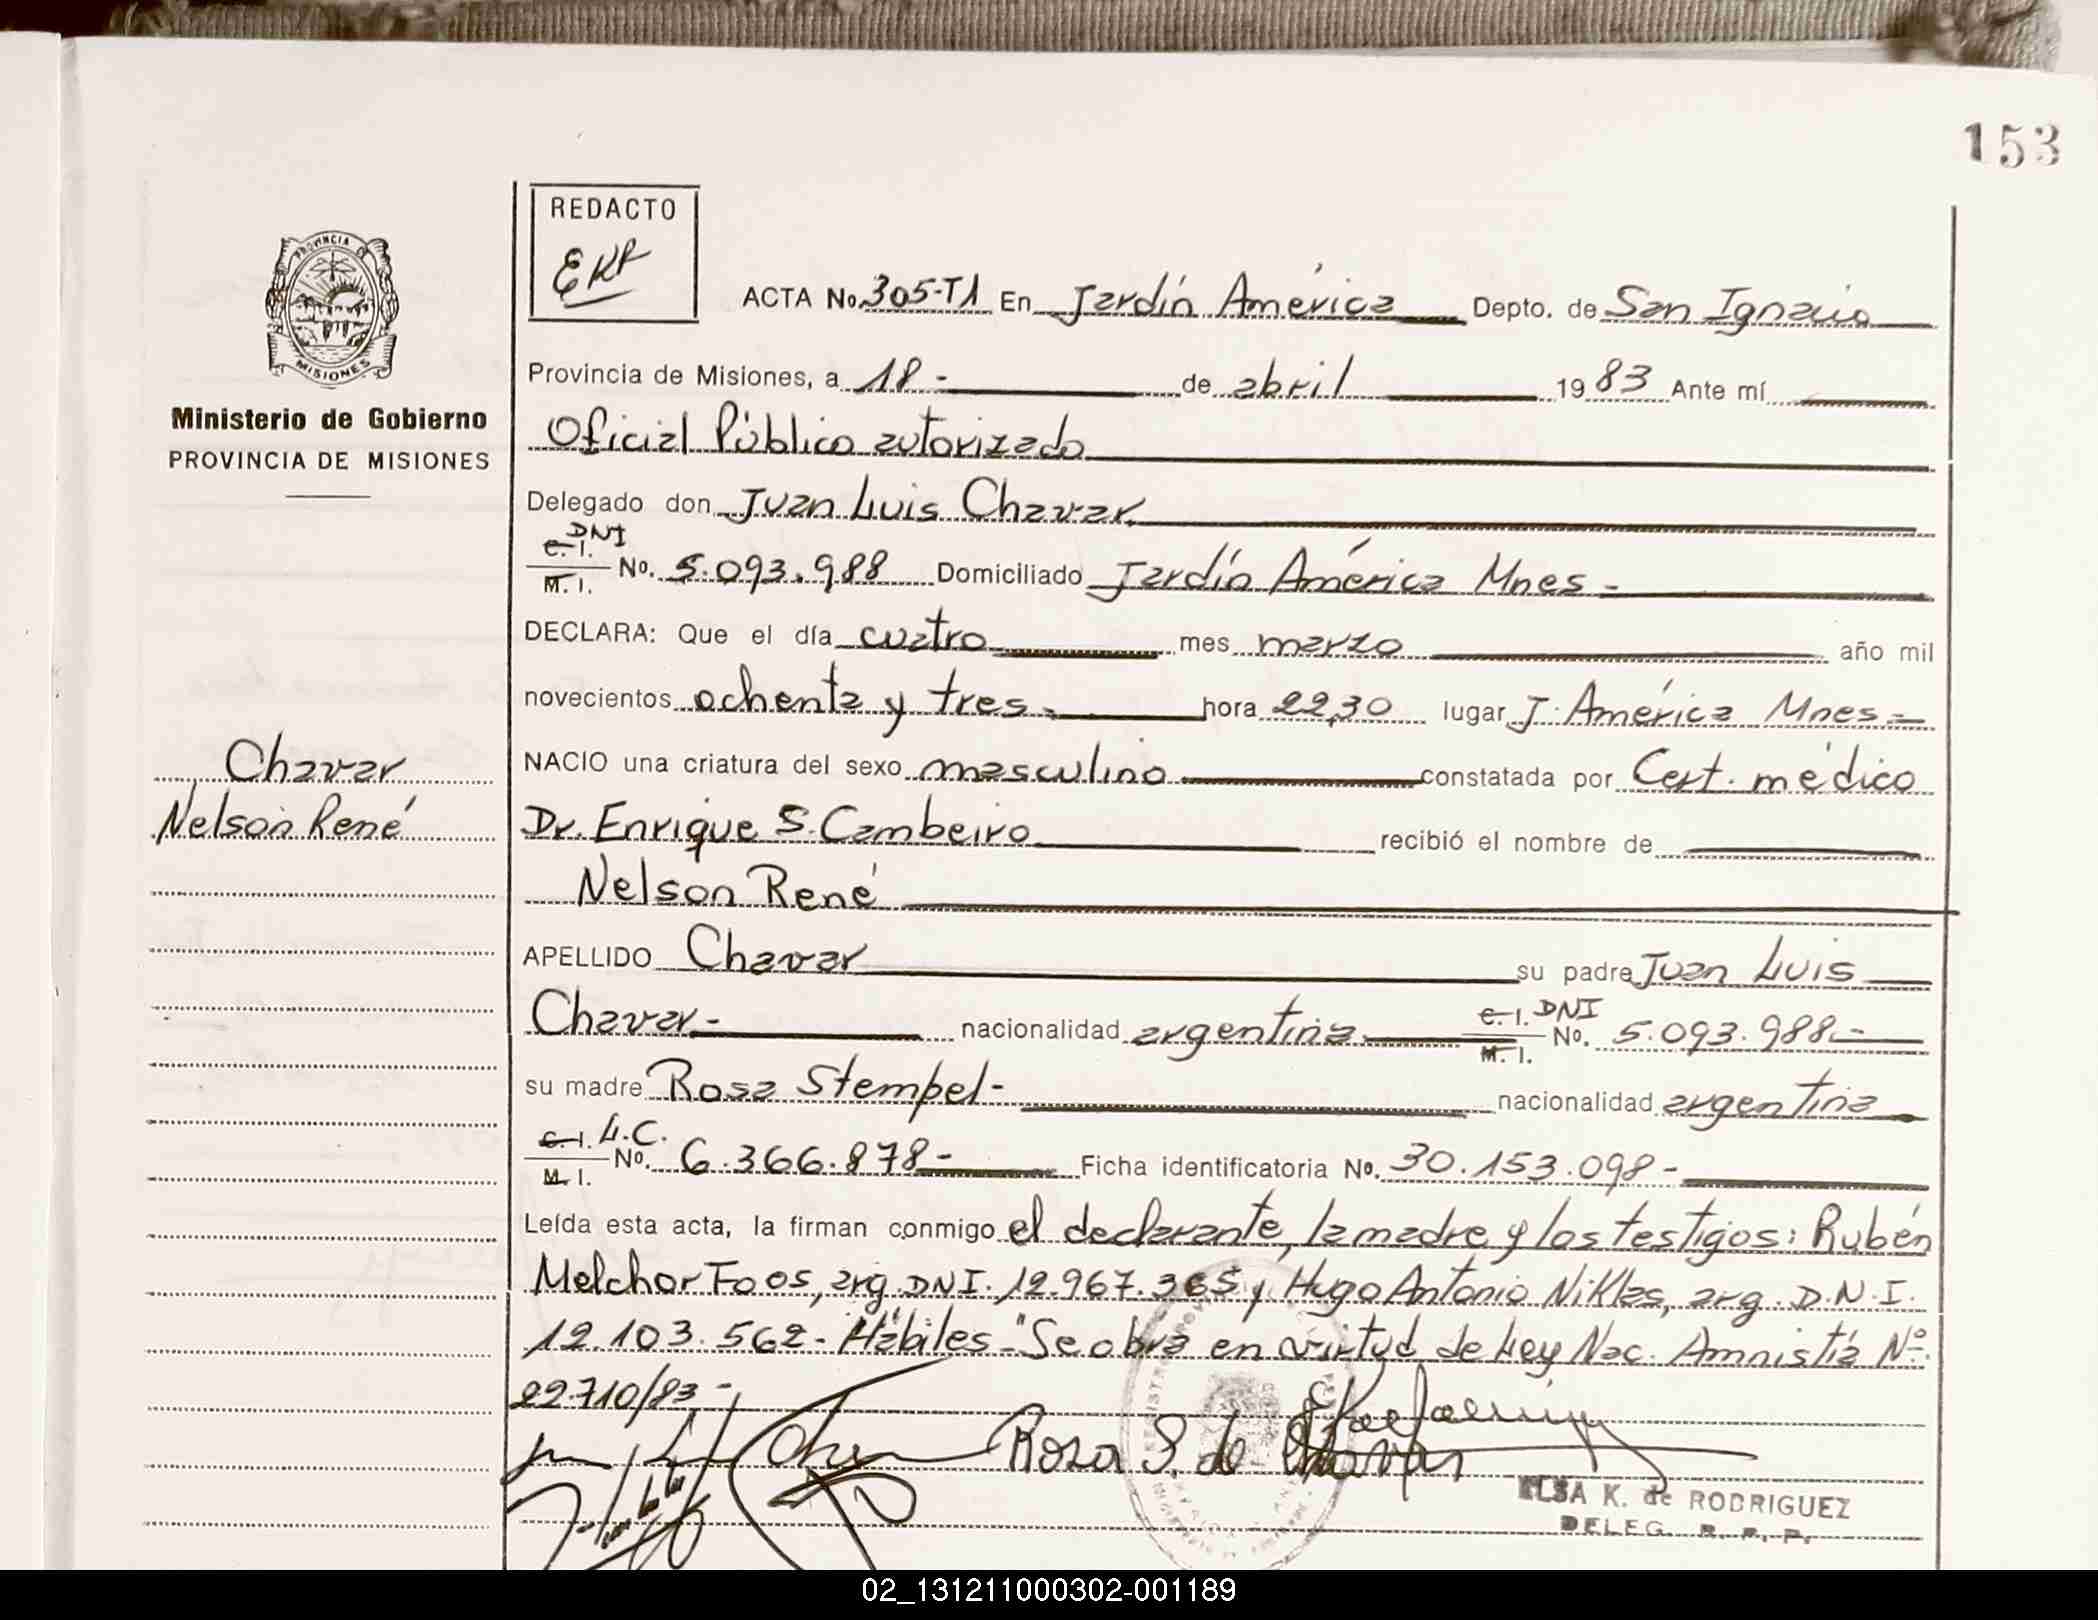 153
REDACTO
EKR
ACTA No. 305-T1 En Jardín América Depto. de San Ignacio
PROVINCIA DE
MISIONES
Ministerio de Gobierno
PROVINCIA DE MISIONES
Provincia de Misiones, a 18- de abril 1983 Ante mí
Oficial Público autorizado
Delegado don Juan Luis Chavar
DNI
C. I.
M. I. No. 5.093.988 Domiciliado Jardín América Mnes-
DECLARA: Que el día cuatro mes marzo año mil
novecientos ochenta y tres- hora 22,30 lugar J. América Mnes-
Chavar
Nelson René
NACIO una criatura del sexo masculino constatada por Cert. médico
Dr. Enrique S. Cambeiro recibió el nombre de
Nelson René
APELLIDO Chavar su padre Juan Luis
Chavar- nacionalidad argentina C. I. DNI
M. I. No. 5.093.988-
su madre Rosa Stempel- nacionalidad argentina
C. I. L.C.
M. I. No. 6.366.878- Ficha identificatoria No. 30.153.098-
Leída esta acta, la firman conmigo el declarante, la madre y los testigos: Rubén
Melchor Foos, arg. DNI. 12.967.365 y Hugo Antonio Niklas, arg. D.N.I.
12.103.562- Hábiles-"Se obra en virtud de Ley Nac. Amnistía Nº
22.710/83-
Rosa S. de Chavar
ELSA K. de RODRIGUEZ
DELEG. R. P. P.
02_131211000302-001189